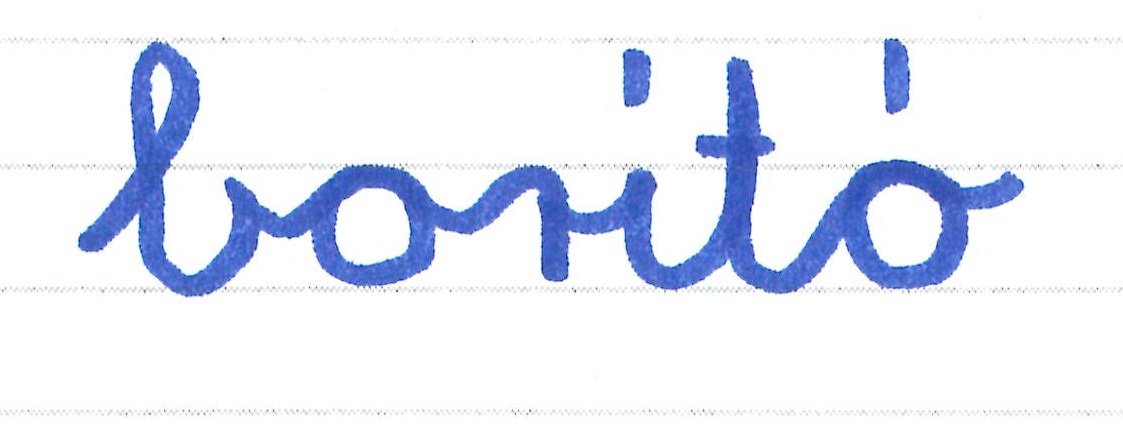 borító